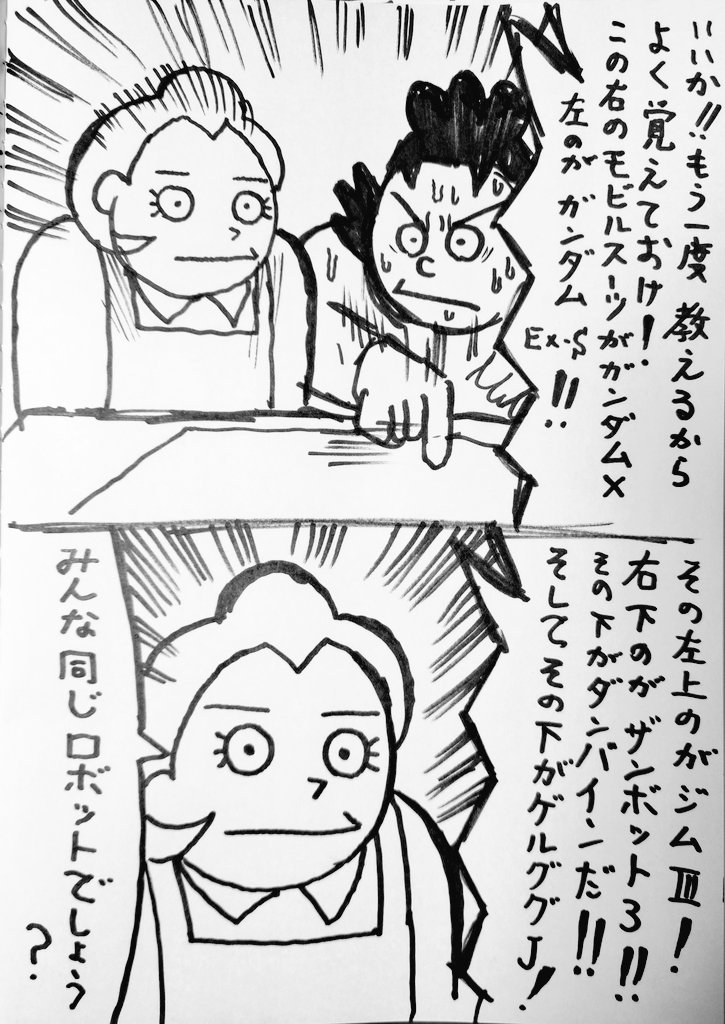 いいか!!もう一度 教えるから
よく覚えておけ!
この右のモビルスーツがガンダムX
左のが ガンダム
Ex-S!!
その左上のがジムⅢ!
右下のが ザンボット3!!
その下がダンバインだ!!
そしてその下がゲルググJ!
みんな同じロボットでしょう
?